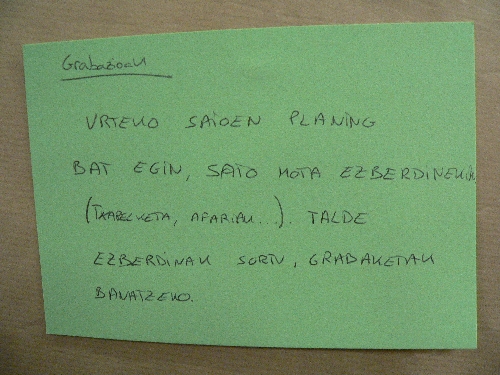 Grabazioak
URTEKO SAIOEN PLANING
BAT EGIN, SAIO MOTA EZBERDINEKIN
(TXAPELKETA, AFARIAK...). TALDE
EZBERDINAK SORTU, GRABAKETAK
BANATZEKO.